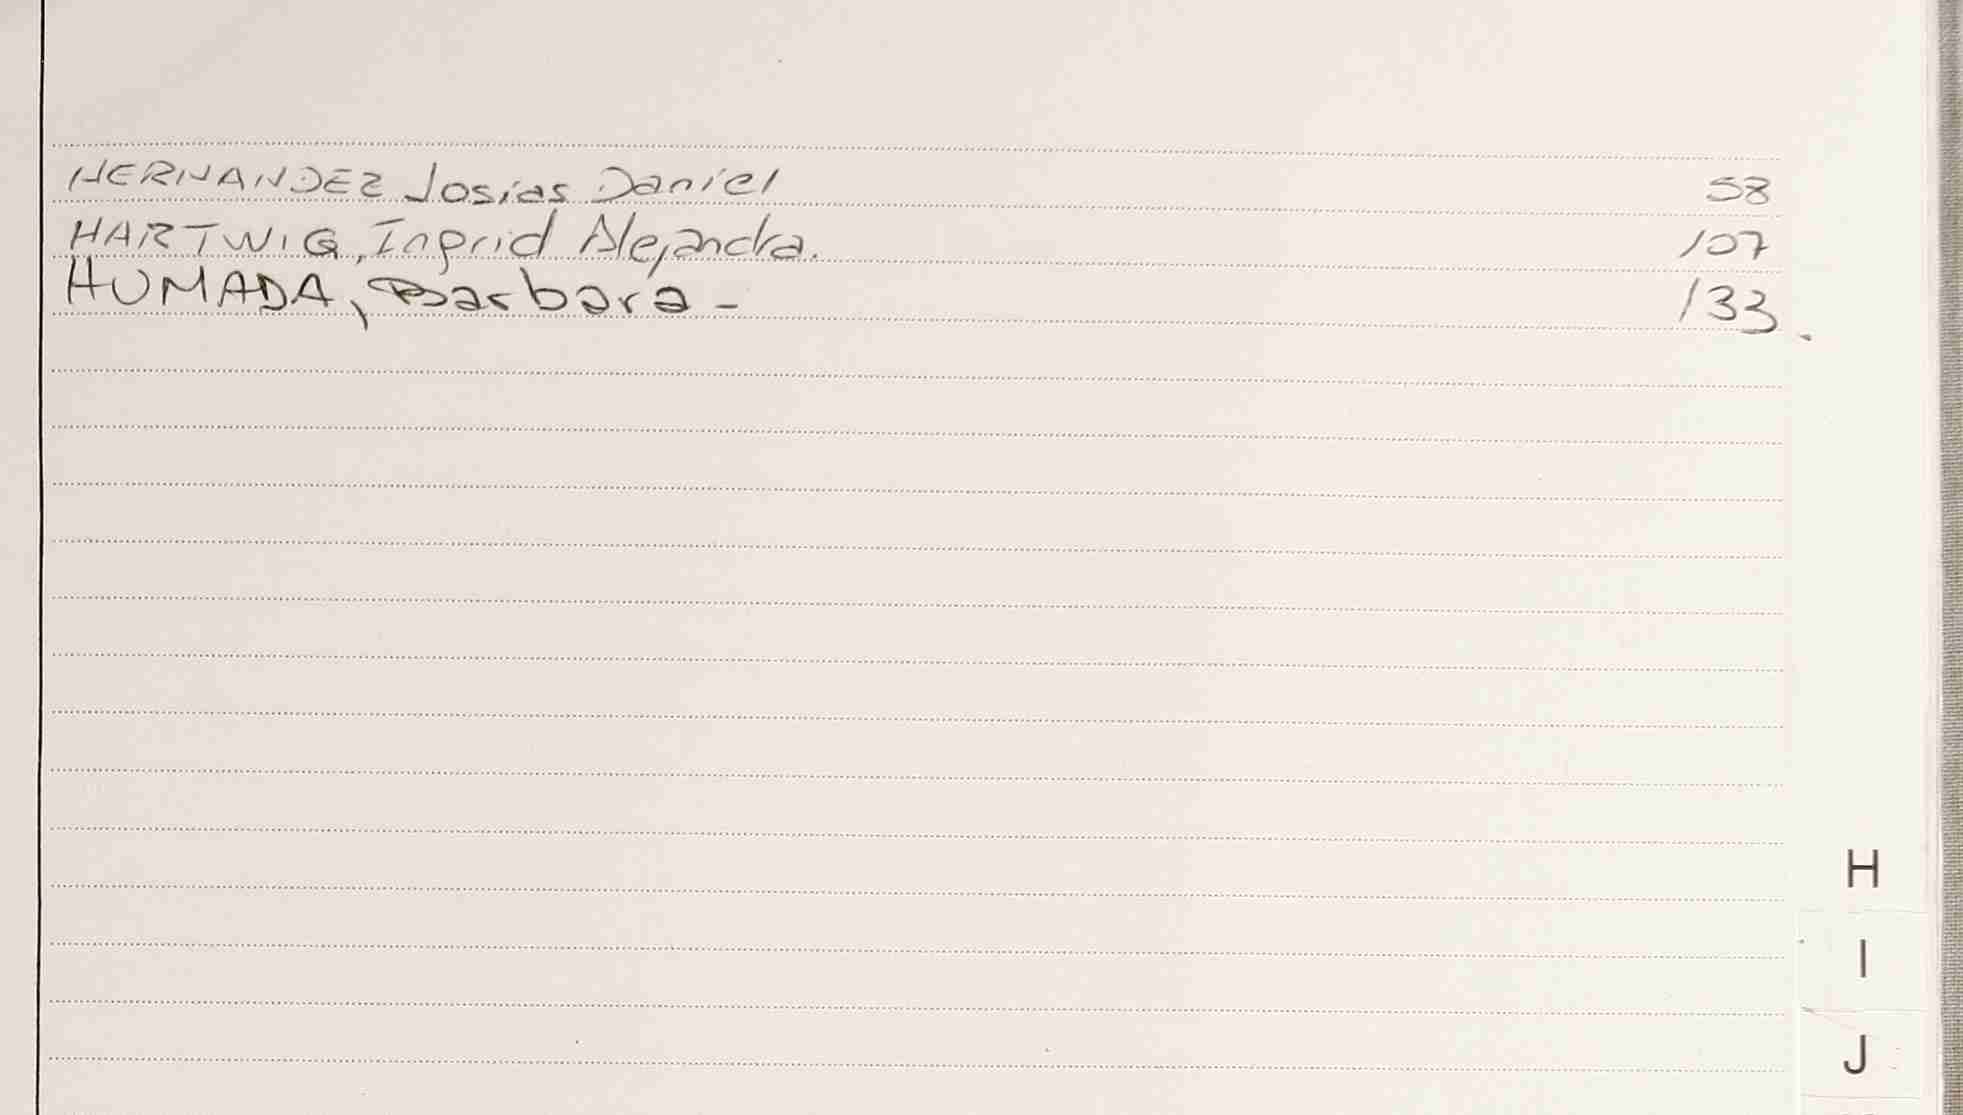 HERNANDEZ Josias Daniel 58
HARTWIG, Ingrid Alejandra. 107
HUMADA, Barbara - 133.
H
I
J